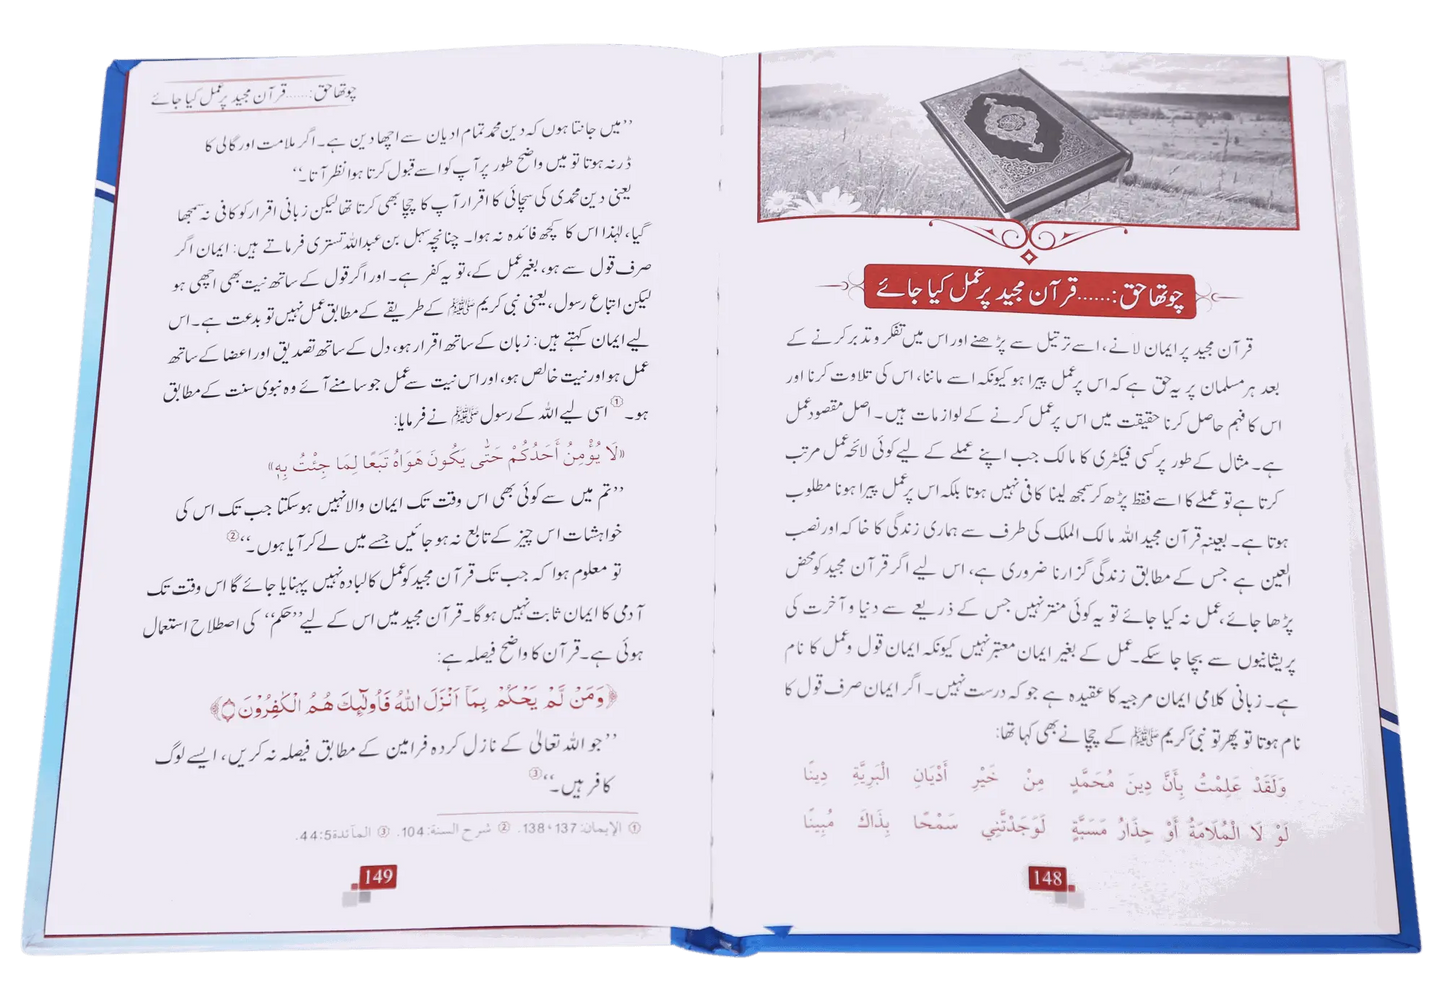 چوتھا حق:......قرآن مجید پر عمل کیا جائے
قرآن مجید پر ایمان لانے، اسے ترتیل سے پڑھنے اور اس میں تفکر و تدبر کرنے کے
بعد ہر مسلمان پر یہ حق ہے کہ اس پر عمل پیرا ہو کیونکہ اسے ماننا، اس کی تلاوت کرنا اور
اس کا فہم حاصل کرنا حقیقت میں اس پر عمل کرنے کے لوازمات ہیں۔ اصل مقصود عمل
ہے۔ مثال کے طور پر کسی فیکٹری کا مالک جب اپنے عملے کے لیے کوئی لائحہ عمل مرتب
کرتا ہے تو عملے کا اسے فقط پڑھ کر سمجھ لینا کافی نہیں ہوتا بلکہ اس پر عمل پیرا ہونا مطلوب
ہوتا ہے۔ بعینہٖ قرآن مجید اللہ مالک الملک کی طرف سے ہماری زندگی کا خاکہ اور نصب
العین ہے جس کے مطابق زندگی گزارنا ضروری ہے، اس لیے اگر قرآن مجید کو محض
پڑھا جائے، عمل نہ کیا جائے تو یہ کوئی منتر نہیں جس کے ذریعے سے دنیا و آخرت کی
پریشانیوں سے بچا جا سکے۔ عمل کے بغیر ایمان معتبر نہیں کیونکہ ایمان قول و عمل کا نام
ہے۔ زبانی کلامی ایمان مرجیہ کا عقیدہ ہے جو کہ درست نہیں۔ اگر ایمان صرف قول کا
نام ہوتا تو پھر تو نبیٔ کریم ﷺ کے چچا نے بھی کہا تھا:
وَلَقَدْ عَلِمْتُ بِأَنَّ دِينَ مُحَمَّدٍ مِنْ خَيْرِ أَدْيَانِ الْبَرِيَّةِ دِينًا
لَوْ لَا الْمُلَامَةُ أَوْ حِذَارُ مَسَبَّةٍ لَوَجَدْتَّنِي سَمْحًا بِذَاكَ مُبِينًا
148
چوتھا حق:......قرآن مجید پر عمل کیا جائے
’’میں جانتا ہوں کہ دین محمد تمام ادیان سے اچھا دین ہے۔ اگر ملامت اور گالی کا
ڈر نہ ہوتا تو میں واضح طور پر آپ کو اسے قبول کرتا ہوا نظر آتا۔‘‘
یعنی دین محمدی کی سچائی کا اقرار آپ کا چچا بھی کرتا تھا لیکن زبانی اقرار کو کافی نہ سمجھا
گیا، لہٰذا اس کا کچھ فائدہ نہ ہوا۔ چنانچہ سہل بن عبداللہ تستری فرماتے ہیں: ایمان اگر
صرف قول سے ہو، بغیر عمل کے، تو یہ کفر ہے۔ اور اگر قول کے ساتھ نیت بھی اچھی ہو
لیکن اتباع رسول، یعنی نبی کریم ﷺ کے طریقے کے مطابق عمل نہیں تو بدعت ہے۔ اس
لیے ایمان کہتے ہیں: زبان کے ساتھ اقرار ہو، دل کے ساتھ تصدیق اور اعضا کے ساتھ
عمل ہو اور نیت خالص ہو، اور اس نیت سے عمل جو سامنے آئے وہ نبوی سنت کے مطابق
ہو۔① اسی لیے اللہ کے رسول ﷺ نے فرمایا:
«لَا يُؤْمِنُ أَحَدُكُمْ حَتّٰى يَكُونَ هَوَاهُ تَبَعًا لِمَا جِئْتُ بِهٖ»
’’تم میں سے کوئی بھی اس وقت تک ایمان والا نہیں ہو سکتا جب تک اس کی
خواہشات اس چیز کے تابع نہ ہو جائیں جسے میں لے کر آیا ہوں۔‘‘②
تو معلوم ہوا کہ جب تک قرآن مجید کو عمل کا لبادہ نہیں پہنایا جائے گا اس وقت تک
آدمی کا ایمان ثابت نہیں ہوگا۔ قرآن مجید میں اس کے لیے ’’حکم‘‘ کی اصطلاح استعمال
ہوئی ہے۔ قرآن کا واضح فیصلہ ہے:
﴿وَمَنْ لَّمْ يَحْكُمْ بِمَاۤ اَنْزَلَ اللّٰهُ فَاُولٰٓىِٕكَ هُمُ الْكٰفِرُوْنَ﴾
’’جو اللہ تعالیٰ کے نازل کردہ فرامین کے مطابق فیصلہ نہ کریں، ایسے لوگ
کافر ہیں۔‘‘③
① الإيمان: 137، 138. ② شرح السنة: 104. ③ المآئدة 44:5.
149